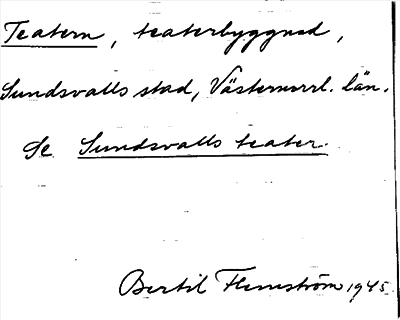 Teatern, teaterbyggnad,
Sundsvalls stad, Västernorrl. län.
Se Sundsvalls teater.
Bertil Flemström 1945.